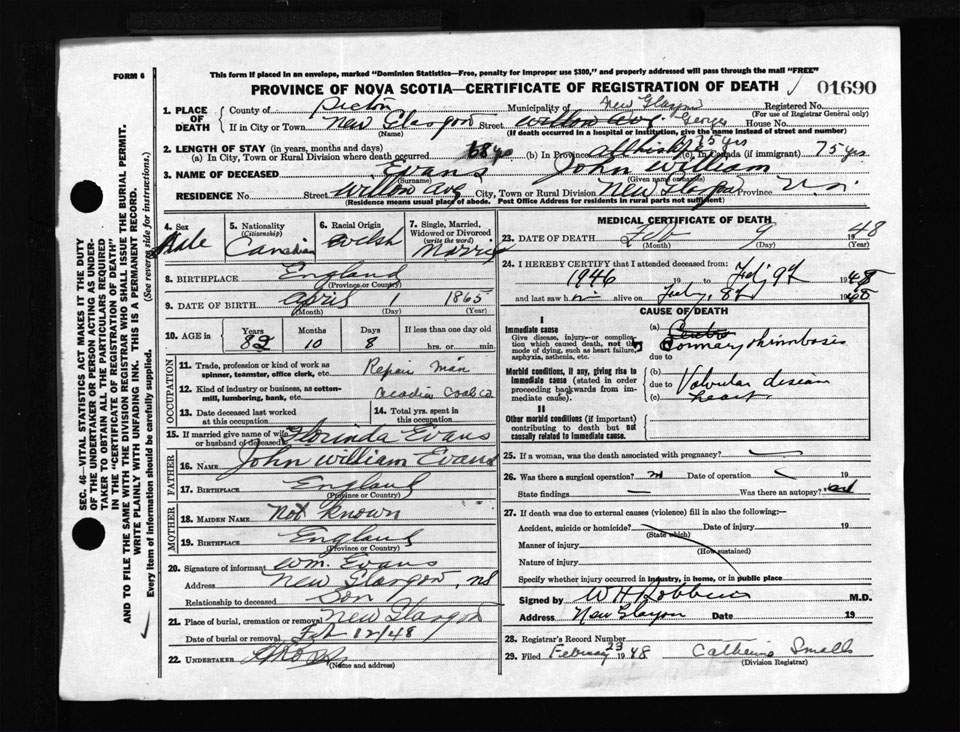 FORM 6
This form if placed in an envelope, marked "Dominion Statistics—Free, penalty for improper use $300," and properly addressed will pass through the mail "FREE"
PROVINCE OF NOVA SCOTIA—CERTIFICATE OF REGISTRATION OF DEATH 01690
1. PLACE OF DEATH County of Pictou Municipality of New Glasgow Registered No.
(For use of Registrar General only)
If in City or Town New Glasgow Street Willow Ave. Georges House No.
(Name) (If death occurred in a hospital or institution, give the name instead of street and number)
2. LENGTH OF STAY (in years, months and days) 75 yrs
(a) In City, Town or Rural Division where death occurred 68 yrs (b) In Province (c) In Canada (if immigrant) 75 yrs
3. NAME OF DECEASED Evans John William
(Surname) (Given names)
RESIDENCE No. Street Willow Ave City, Town or Rural Division New Glasgow Province N.S.
(Residence means usual place of abode. Post Office Address for residents in rural parts not sufficient)
4. Sex Male
5. Nationality (Citizenship) Canadian
6. Racial Origin Welsh
7. Single, Married, Widowed or Divorced (write the word) Married
8. BIRTHPLACE England
(Province or Country)
9. DATE OF BIRTH April 1 1865
(Month) (Day) (Year)
10. AGE in Years Months Days If less than one day old
82 10 8 hrs. or min.
OCCUPATION
11. Trade, profession or kind of work as spinner, teamster, office clerk, etc. Repair Man
12. Kind of industry or business, as cotton-mill, lumbering, bank, etc. Acadia Coal Co
13. Date deceased last worked at this occupation
14. Total yrs. spent in this occupation
15. If married give name of wife or husband of deceased Florinda Evans
FATHER
16. Name John William Evans
17. Birthplace England
(Province or Country)
MOTHER
18. Maiden Name Not Known
19. Birthplace England
(Province or Country)
20. Signature of informant Wm. Evans
Address New Glasgow, NS
Relationship to deceased Son
21. Place of burial, cremation or removal New Glasgow
Date of burial or removal Feb 12/48
22. UNDERTAKER
(Name and address)
MEDICAL CERTIFICATE OF DEATH
23. DATE OF DEATH Feb 9 1948
(Month) (Day) (Year)
24. I HEREBY CERTIFY that I attended deceased from:
1946 19 to Feb 9th 1948
and last saw him alive on Feby. 8th 1948
CAUSE OF DEATH
I
Immediate cause
Give disease, injury- or complication which caused death, not the mode of dying, such as heart failure, asphyxia, asthenia, etc.
(a) Coronary thrombosis
due to
Morbid conditions, if any, giving rise to immediate cause (stated in order proceeding backwards from immediate cause).
(b)
due to Valvular disease
(c) heart
II
Other morbid conditions (if important) contributing to death but not causally related to immediate cause.
25. If a woman, was the death associated with pregnancy?
26. Was there a surgical operation? no Date of operation 19
State findings — Was there an autopsy?
27. If death was due to external causes (violence) fill in also the following:—
Accident, suicide or homicide? Date of injury 19
(State which)
Manner of injury
(How sustained)
Nature of injury
Specify whether injury occurred in industry, in home, or in public place
Signed by W H Robbins M.D.
Address New Glasgow Date 19
28. Registrar's Record Number
29. Filed February 23 1948 Catherine Smalls
(Division Registrar)
SEC. 46—VITAL STATISTICS ACT MAKES IT THE DUTY
OF THE UNDERTAKER OR PERSON ACTING AS UNDER-
TAKER TO OBTAIN ALL THE PARTICULARS REQUIRED
IN THE "CERTIFICATE OF REGISTRATION OF DEATH"
AND TO FILE THE SAME WITH THE DIVISION REGISTRAR WHO SHALL ISSUE THE BURIAL PERMIT.
WRITE PLAINLY WITH UNFADING INK. THIS IS A PERMANENT RECORD.
Every item of information should be carefully supplied. (See reverse side for instructions.)